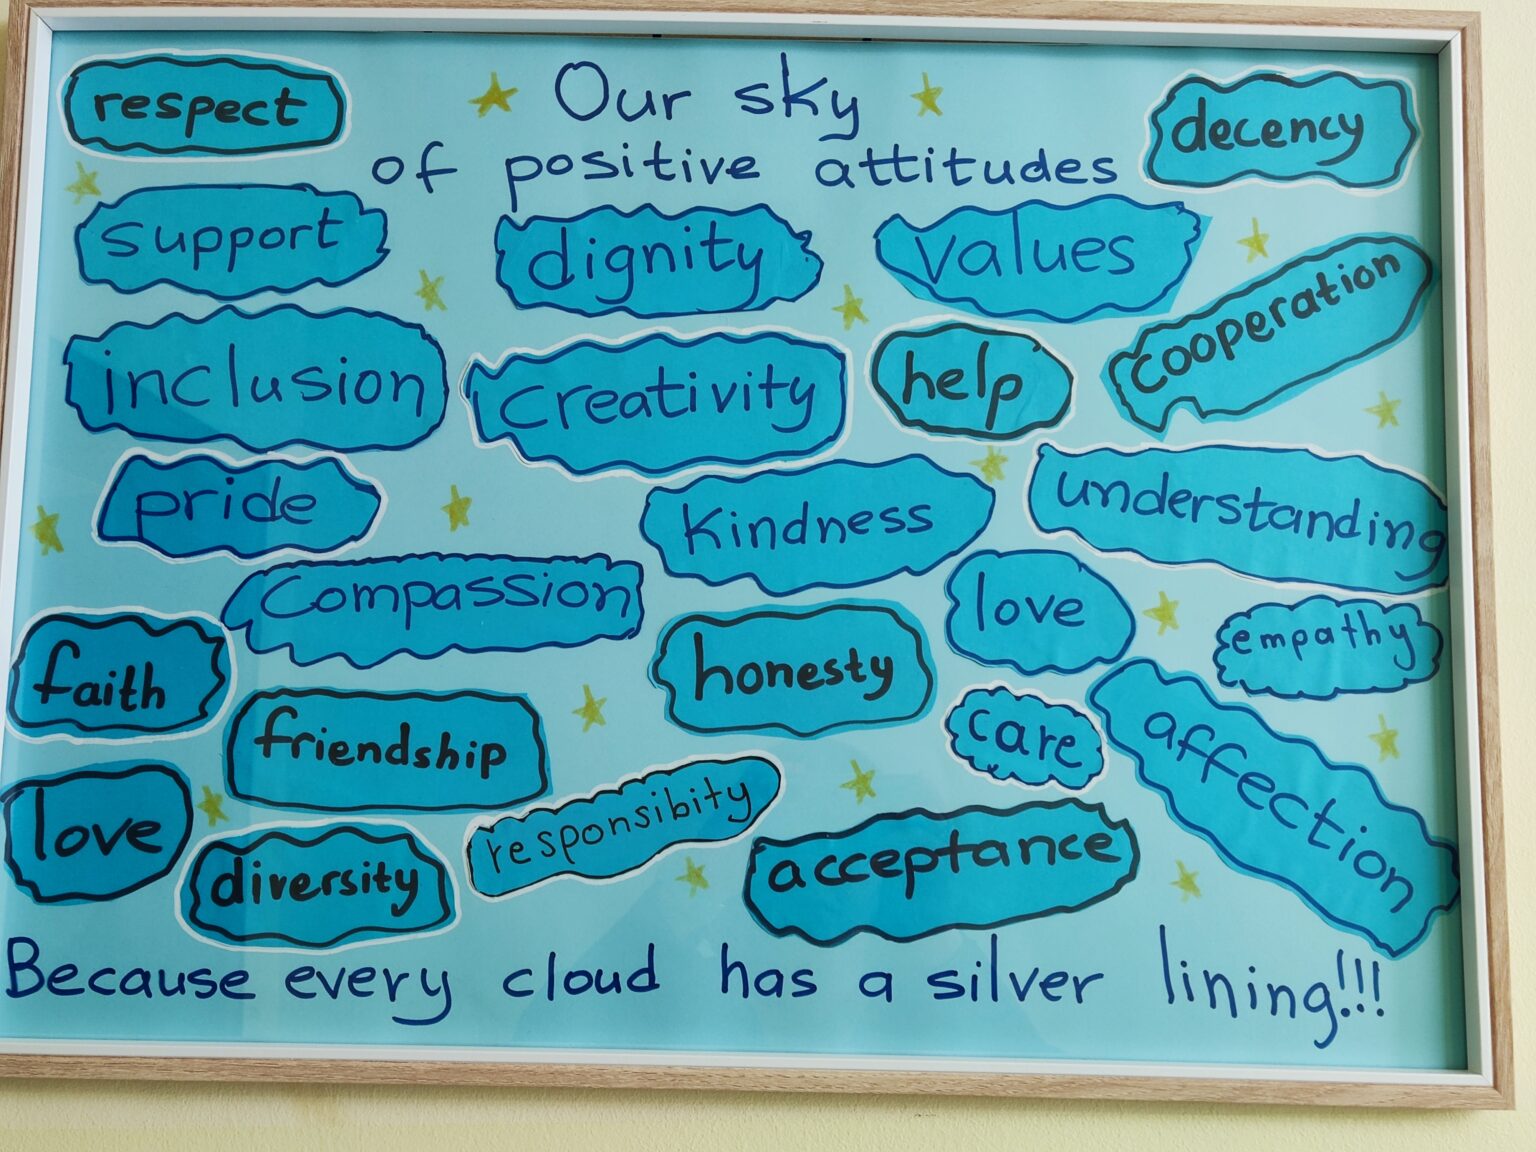 Our sky
of positive attitudes
respect
decency
support
dignity
values
cooperation
inclusion
creativity
help
pride
kindness
understanding
compassion
love
empathy
faith
honesty
friendship
care
affection
love
responsibity
diversity
acceptance
Because every cloud has a silver lining!!!